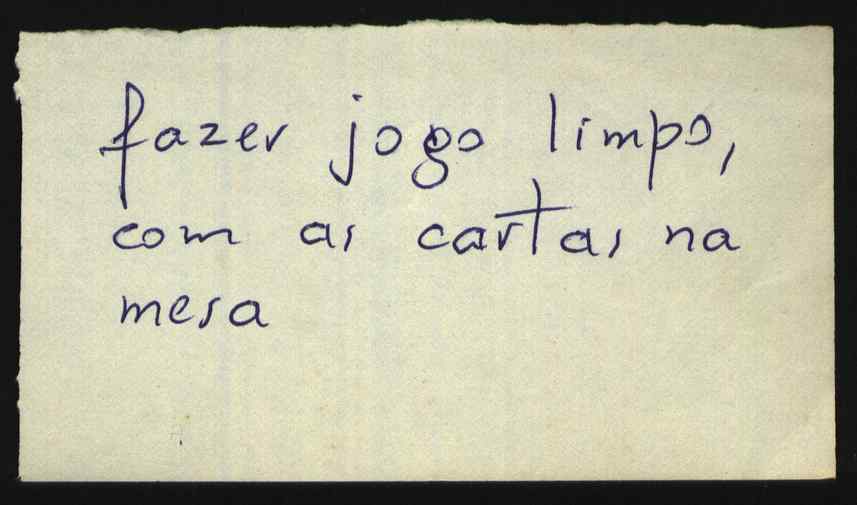 fazer jogo limpo,
com as cartas na
mesa